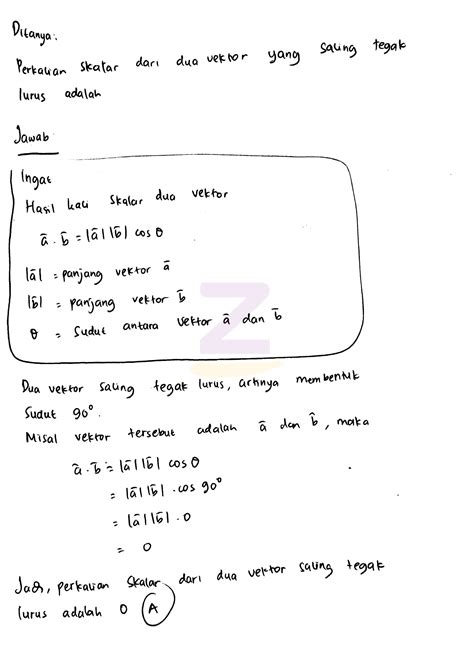 Ditanya:
Perkalian skalar dari dua vektor yang saling tegak
lurus adalah
Jawab:
Ingat
Hasil kali skalar dua vektor
ā . b̄ = |ā| |b̄| cos θ
|ā| = panjang vektor ā
|b̄| = panjang vektor b̄
θ = Sudut antara vektor ā dan b̄
Z
Dua vektor saling tegak lurus, artinya membentuk
Sudut 90°.
Misal vektor tersebut adalah ā dan b̄, maka
ā . b̄ = |ā| |b̄| cos θ
= |ā| |b̄| . cos 90°
= |ā| |b̄| . 0
= 0
Jadi, perkalian skalar dari dua vektor saling tegak
lurus adalah 0 A